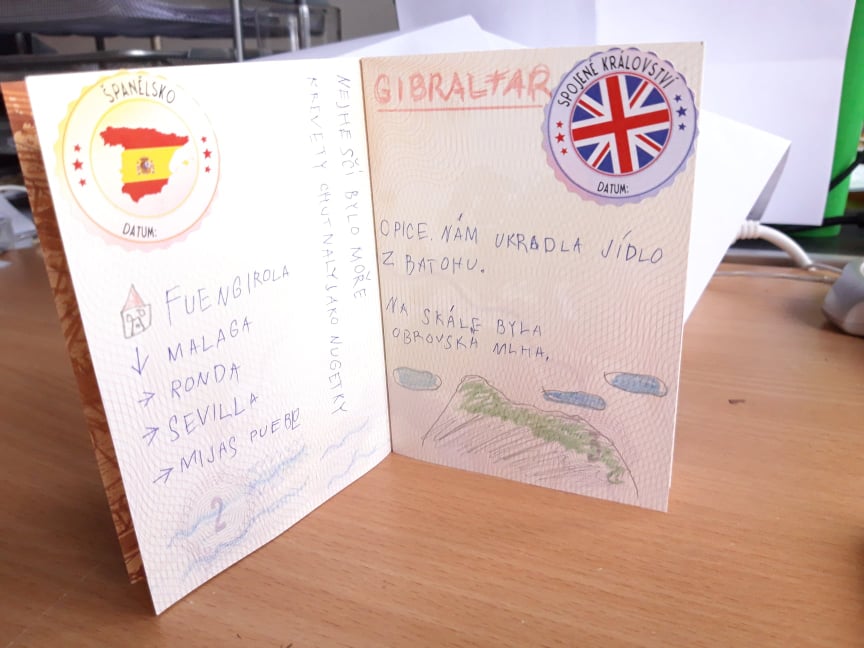 ŠPANĚLSKO
DATUM:
FUENGIROLA
MALAGA
RONDA
SEVILLA
MIJAS PUEBLO
2
NEJHESČÍ BYLO MOŘE
KREVETY CHUTNALY JAKO NUGETKY
GIBRALTAR
SPOJENÉ KRÁLOVSTVÍ
DATUM:
OPICE NÁM UKRADLA JÍDLO
Z BATOHU.
NA SKÁLE BYLA
OBROVSKÁ MLHA.